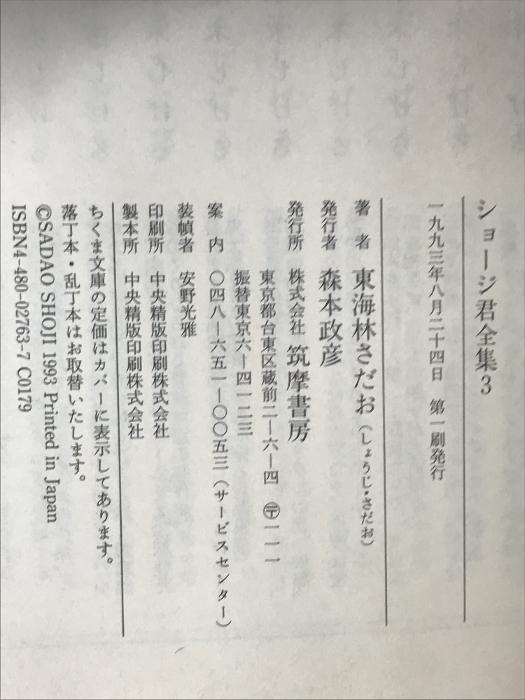 ショージ君全集3
一九九三年八月二十四日 第一刷発行
著者 東海林さだお（しょうじ・さだお）
発行者 森本政彦
発行所 株式会社 筑摩書房
東京都台東区蔵前二―六―四 〒一一一
振替東京六―四一二三
案内 〇四八―六五一―〇〇五三（サービスセンター）
装幀者 安野光雅
印刷所 中央精版印刷株式会社
製本所 中央精版印刷株式会社
ちくま文庫の定価はカバーに表示してあります。
落丁本・乱丁本はお取替いたします。
©SADAO SHOJI 1993 Printed in Japan
ISBN4-480-02763-7 C0179